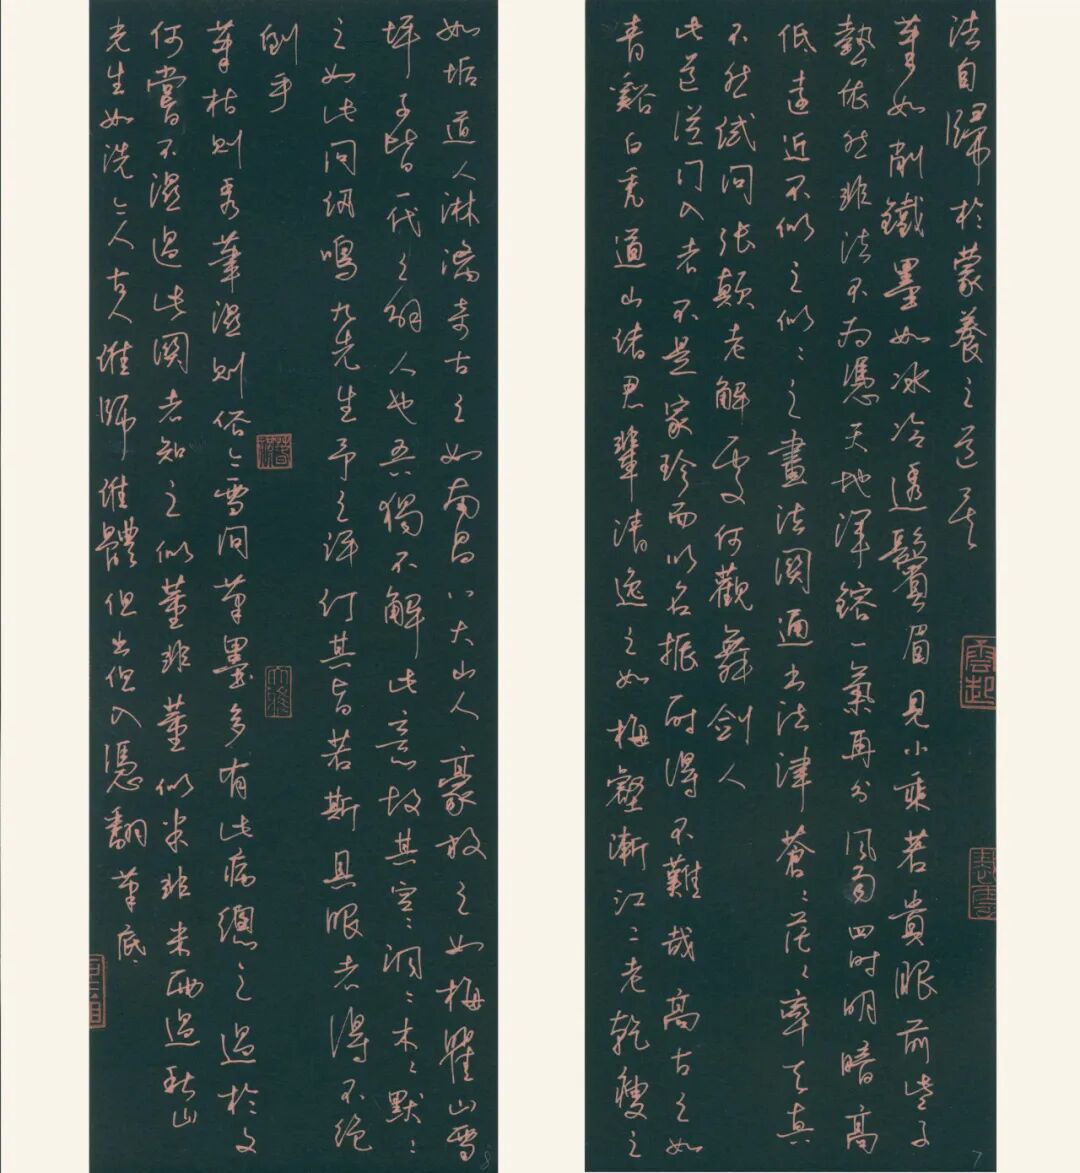 法自歸於蒙養之道矣
筆如削鐵墨如冰冷透鬚眉見小乘若貴眼前些子
熱依然非法不為憑天地渾鎔一氣再分風雨四時明暗高
低遠近不似之似似之畫法關通書法津蒼蒼茫茫率天真
不然試問張顛老解處何觀舞劍人
此道從門入者不是家珍而以名振一時得不難哉高古之如
青谿白禿道山諸君輩清逸之如梅壑漸江二老乾瘦之
雲起
7
如垢道人淋漓奇古之如南昌八大山人豪放之如梅瞿山雪
坪子皆一代之解人也吾獨不解此意故其空空洞洞木木默默
之如此問訊鳴六先生予之評訂其旨若斯具眼者得不絕
倒乎
筆枯則秀筆濕則俗今雲間筆墨多有此病總之過於文
何嘗不濕過此關者知之似董非董似米非米雨過秋山
光生如洗今人古人誰師誰體但出但入憑翻筆底
8